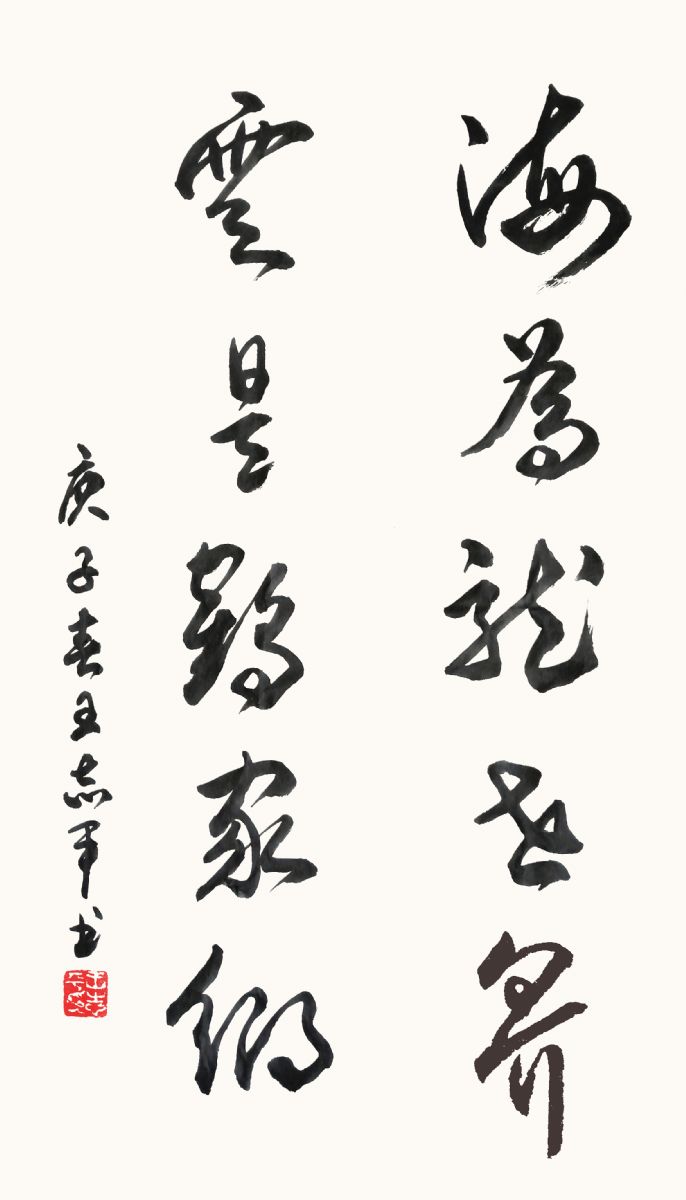 海為龍世界
雲是鶴家鄉
庚子春王志军书